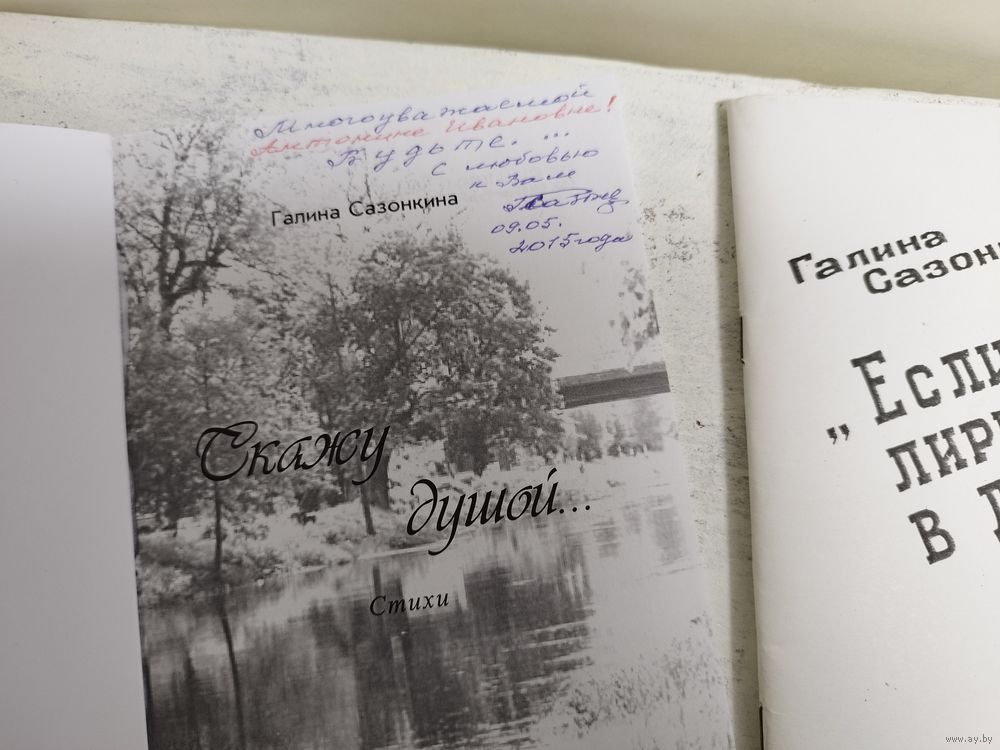 Многоуважаемой
Антонине Ивановне!
Будьте...
с любовью
к Вам
09.05.
2015 года
Галина Сазонкина
Скажу
душой...
Стихи
Галина
Сазон
„Если
лир
в
www.ay.by